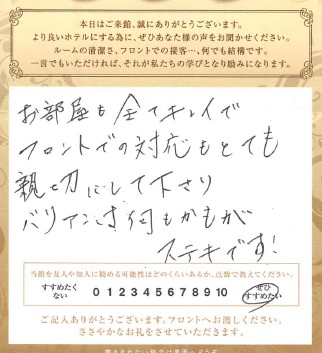 本日はご来館、誠にありがとうございます。
より良いホテルにする為に、ぜひあなた様の声をお聞かせください。
ルームの清潔さ、フロントでの接客…、何でも結構です。
一言でもいただければ、それが私たちの学びとなり励みになります。
お部屋も全てキレイで
フロントでの対応もとても
親切にして下さり
バリアンさす何もかもが
ステキです!
当館を友人や知人に勧める可能性はどのくらいあるか、点数で教えてください。
すすめたくない 0 1 2 3 4 5 6 7 8 9 10 ぜひすすめたい
ご記入ありがとうございます。フロントへお渡しください。
ささやかなお礼をさせていただきます。